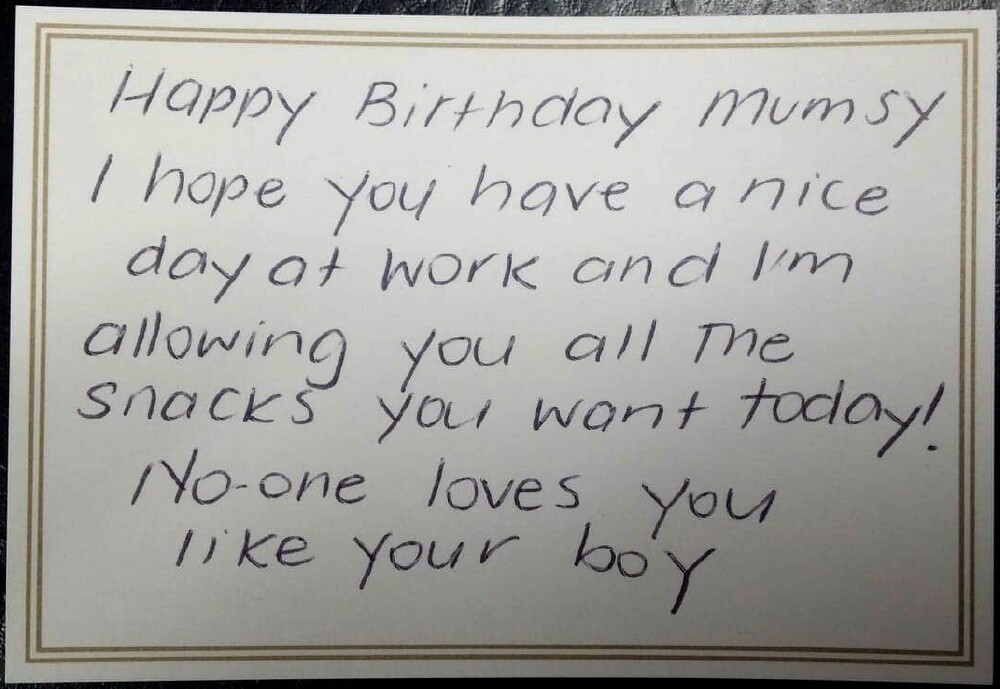 Happy Birthday Mumsy
I hope you have a nice
day at work and I'm
allowing you all the
snacks you want today!
No-one loves you
like your boy